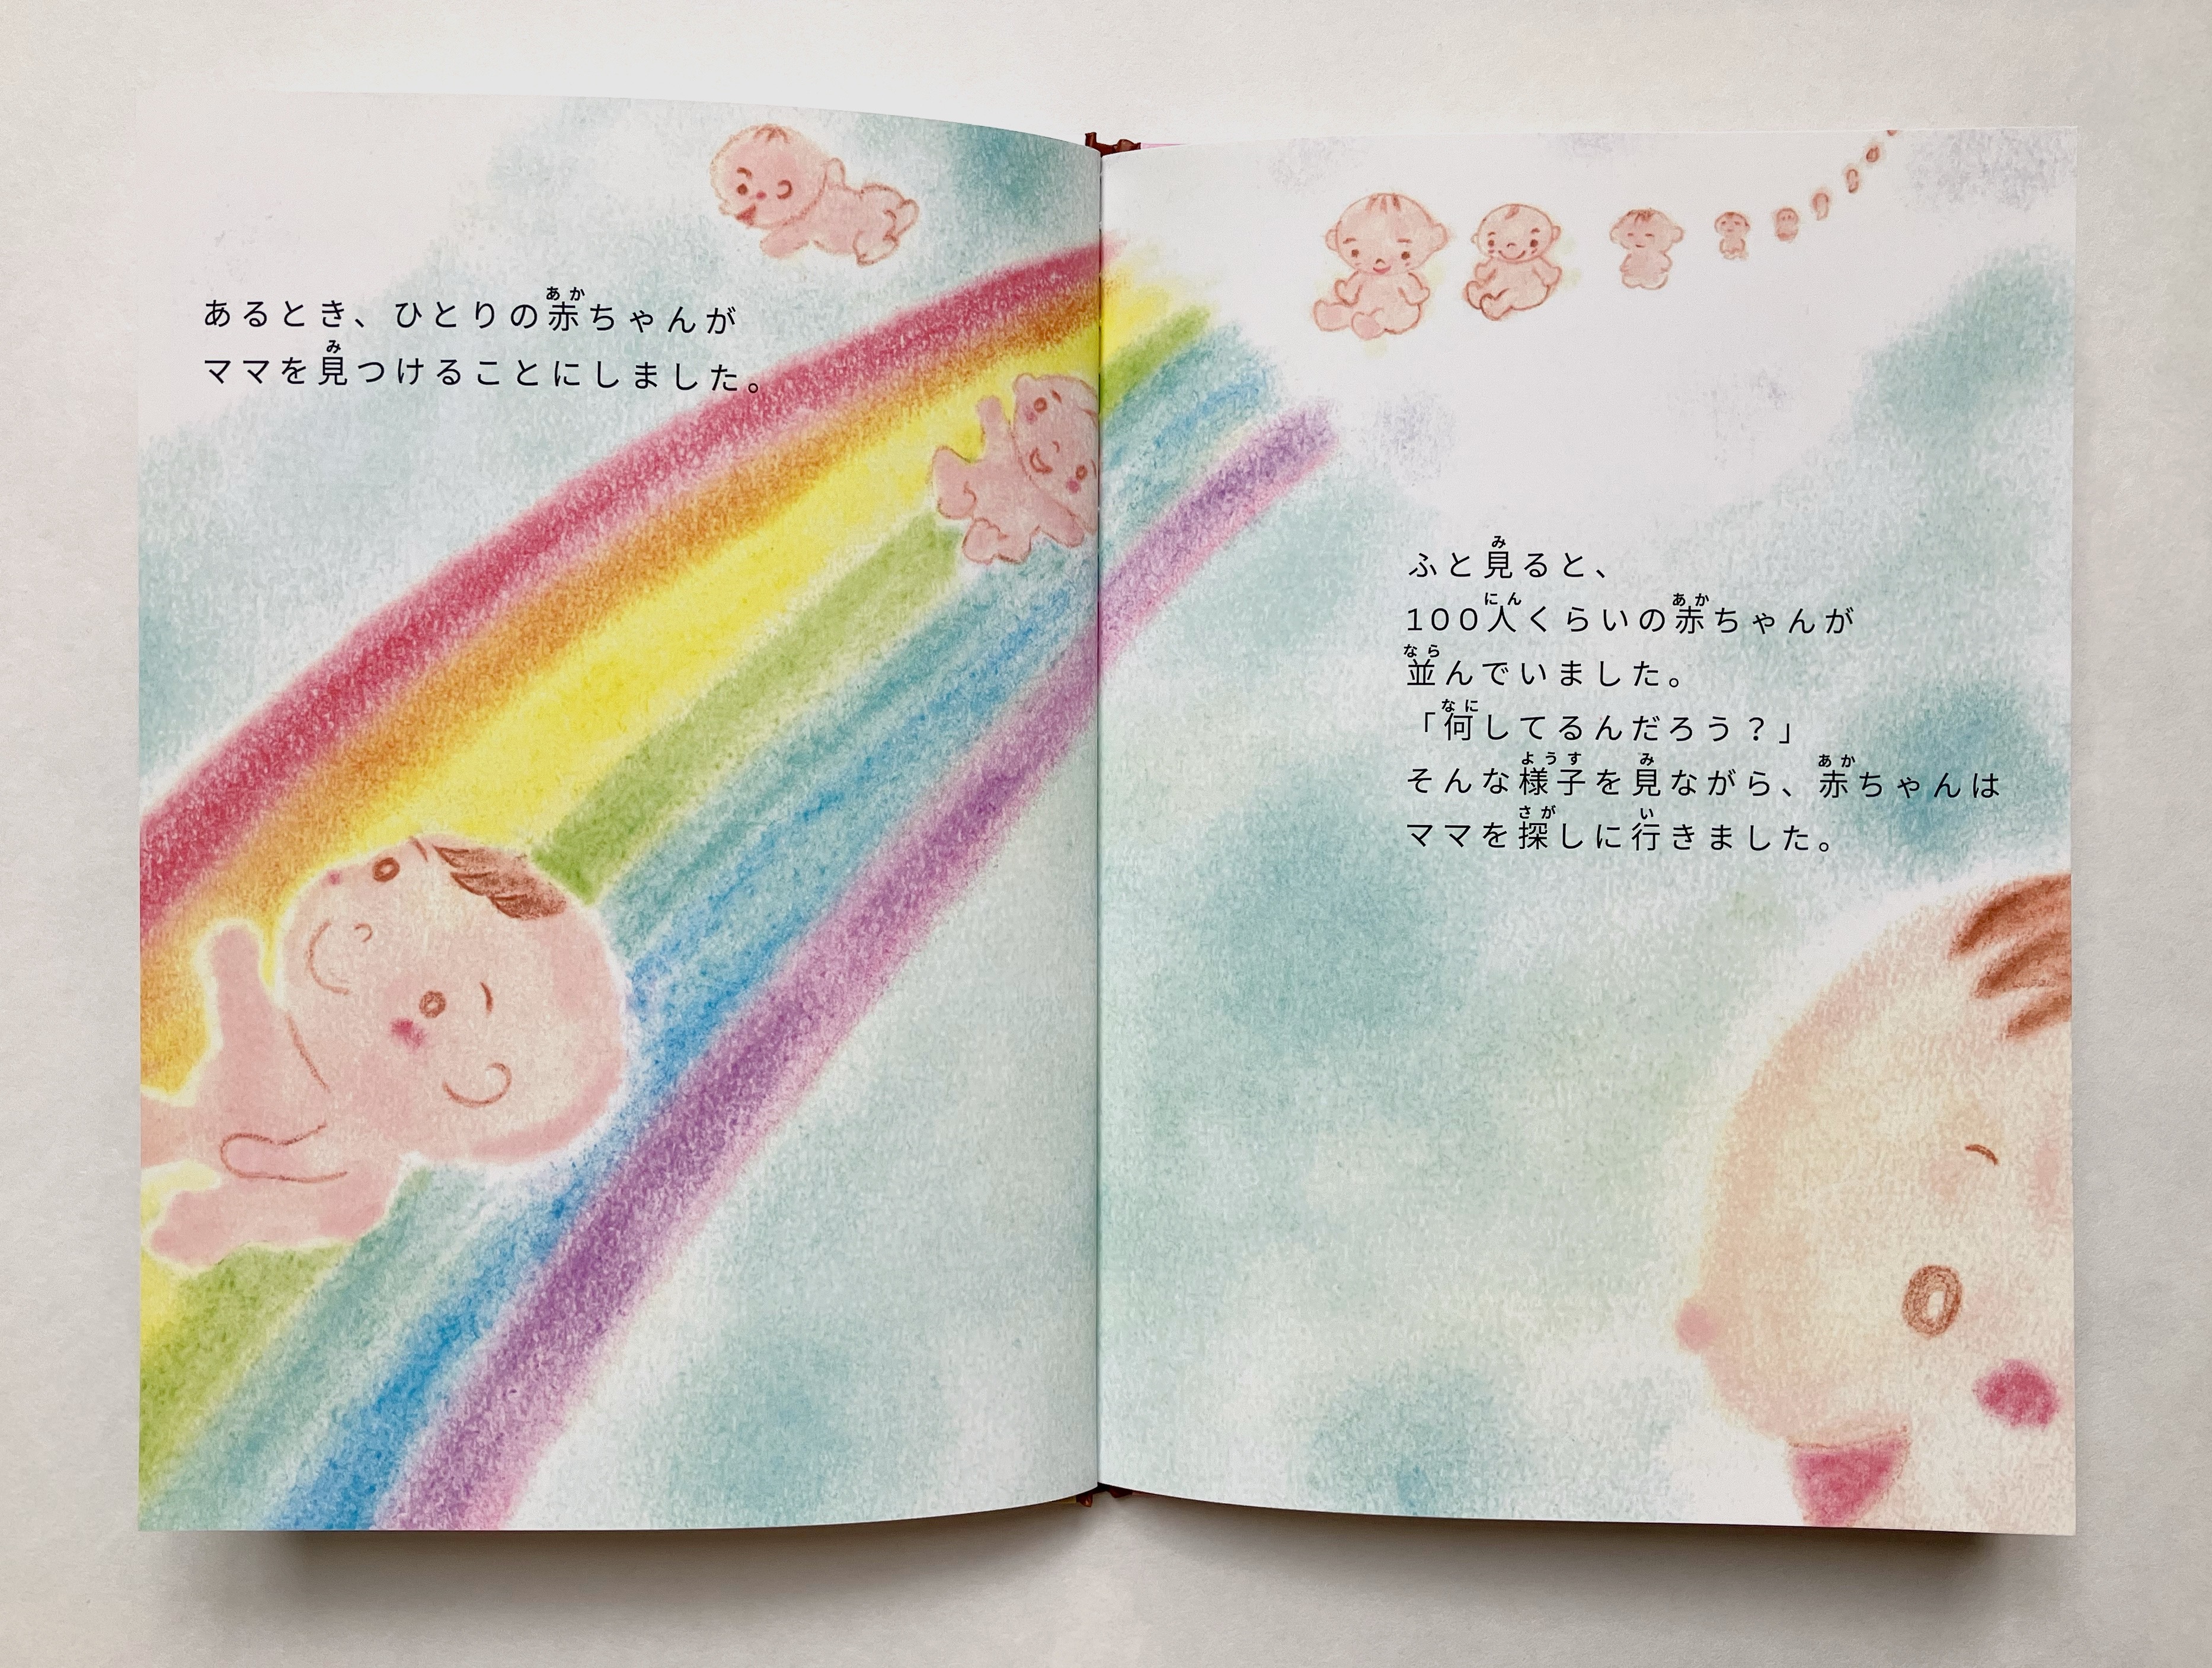 あるとき、ひとりの赤ちゃんが
ママを見つけることにしました。
ふと見ると、
100人くらいの赤ちゃんが
並んでいました。
「何してるんだろう？」
そんな様子を見ながら、赤ちゃんは
ママを探しに行きました。